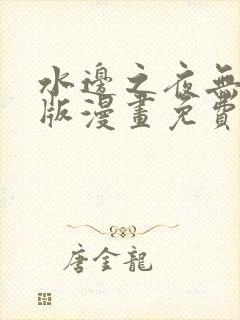 水邊之夜無
版漫畫免費
唐金龍